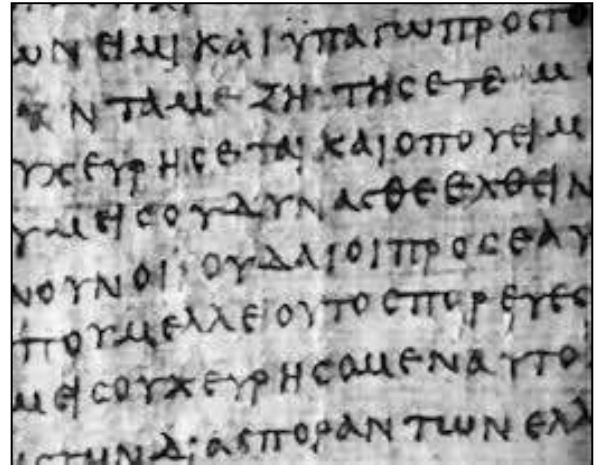 ΩΝ ΕΙΜΙ ΚΑΙ ΥΠΑΓΩ ΠΡΟϹ ΤΟ
ΑΝΤΑ ΜΕ ΖΗΤΗϹΕΤΕ Μ
ΥΧ ΕΥΡΗϹΕΤΑΙ ΚΑΙ ΟΠΟΥ ΕΙΜ
ΥΜΕΙϹ ΟΥ ΔΥΝΑϹΘΕ ΕΛΘΕΙΝ
ΝΟΥΝ ΟΙ ΙΟΥΔΑΙΟΙ ΠΡΟϹ ΕΑΥ
ΠΟΥ ΜΕΛΛΕΙ ΟΥΤΟϹ ΠΟΡΕΥΕϹ
ΜΕΙϹ ΟΥΧ ΕΥΡΗϹΟΜΕΝ ΑΥΤΟ
ΙϹ ΤΗΝ ΔΙΑϹΠΟΡΑΝ ΤΩΝ ΕΛΛ